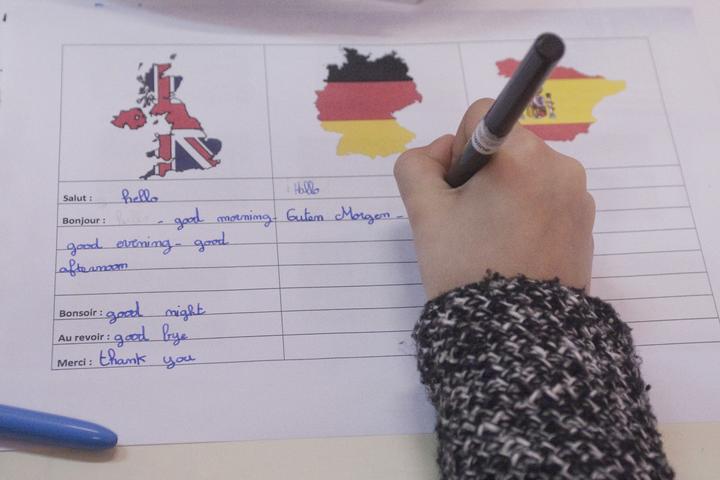 Salut : hello Hallo
Bonjour : - good morning Guten Morgen -
good evening - good
afternoom
Bonsoir : good night
Au revoir : good bye
Merci : thank you